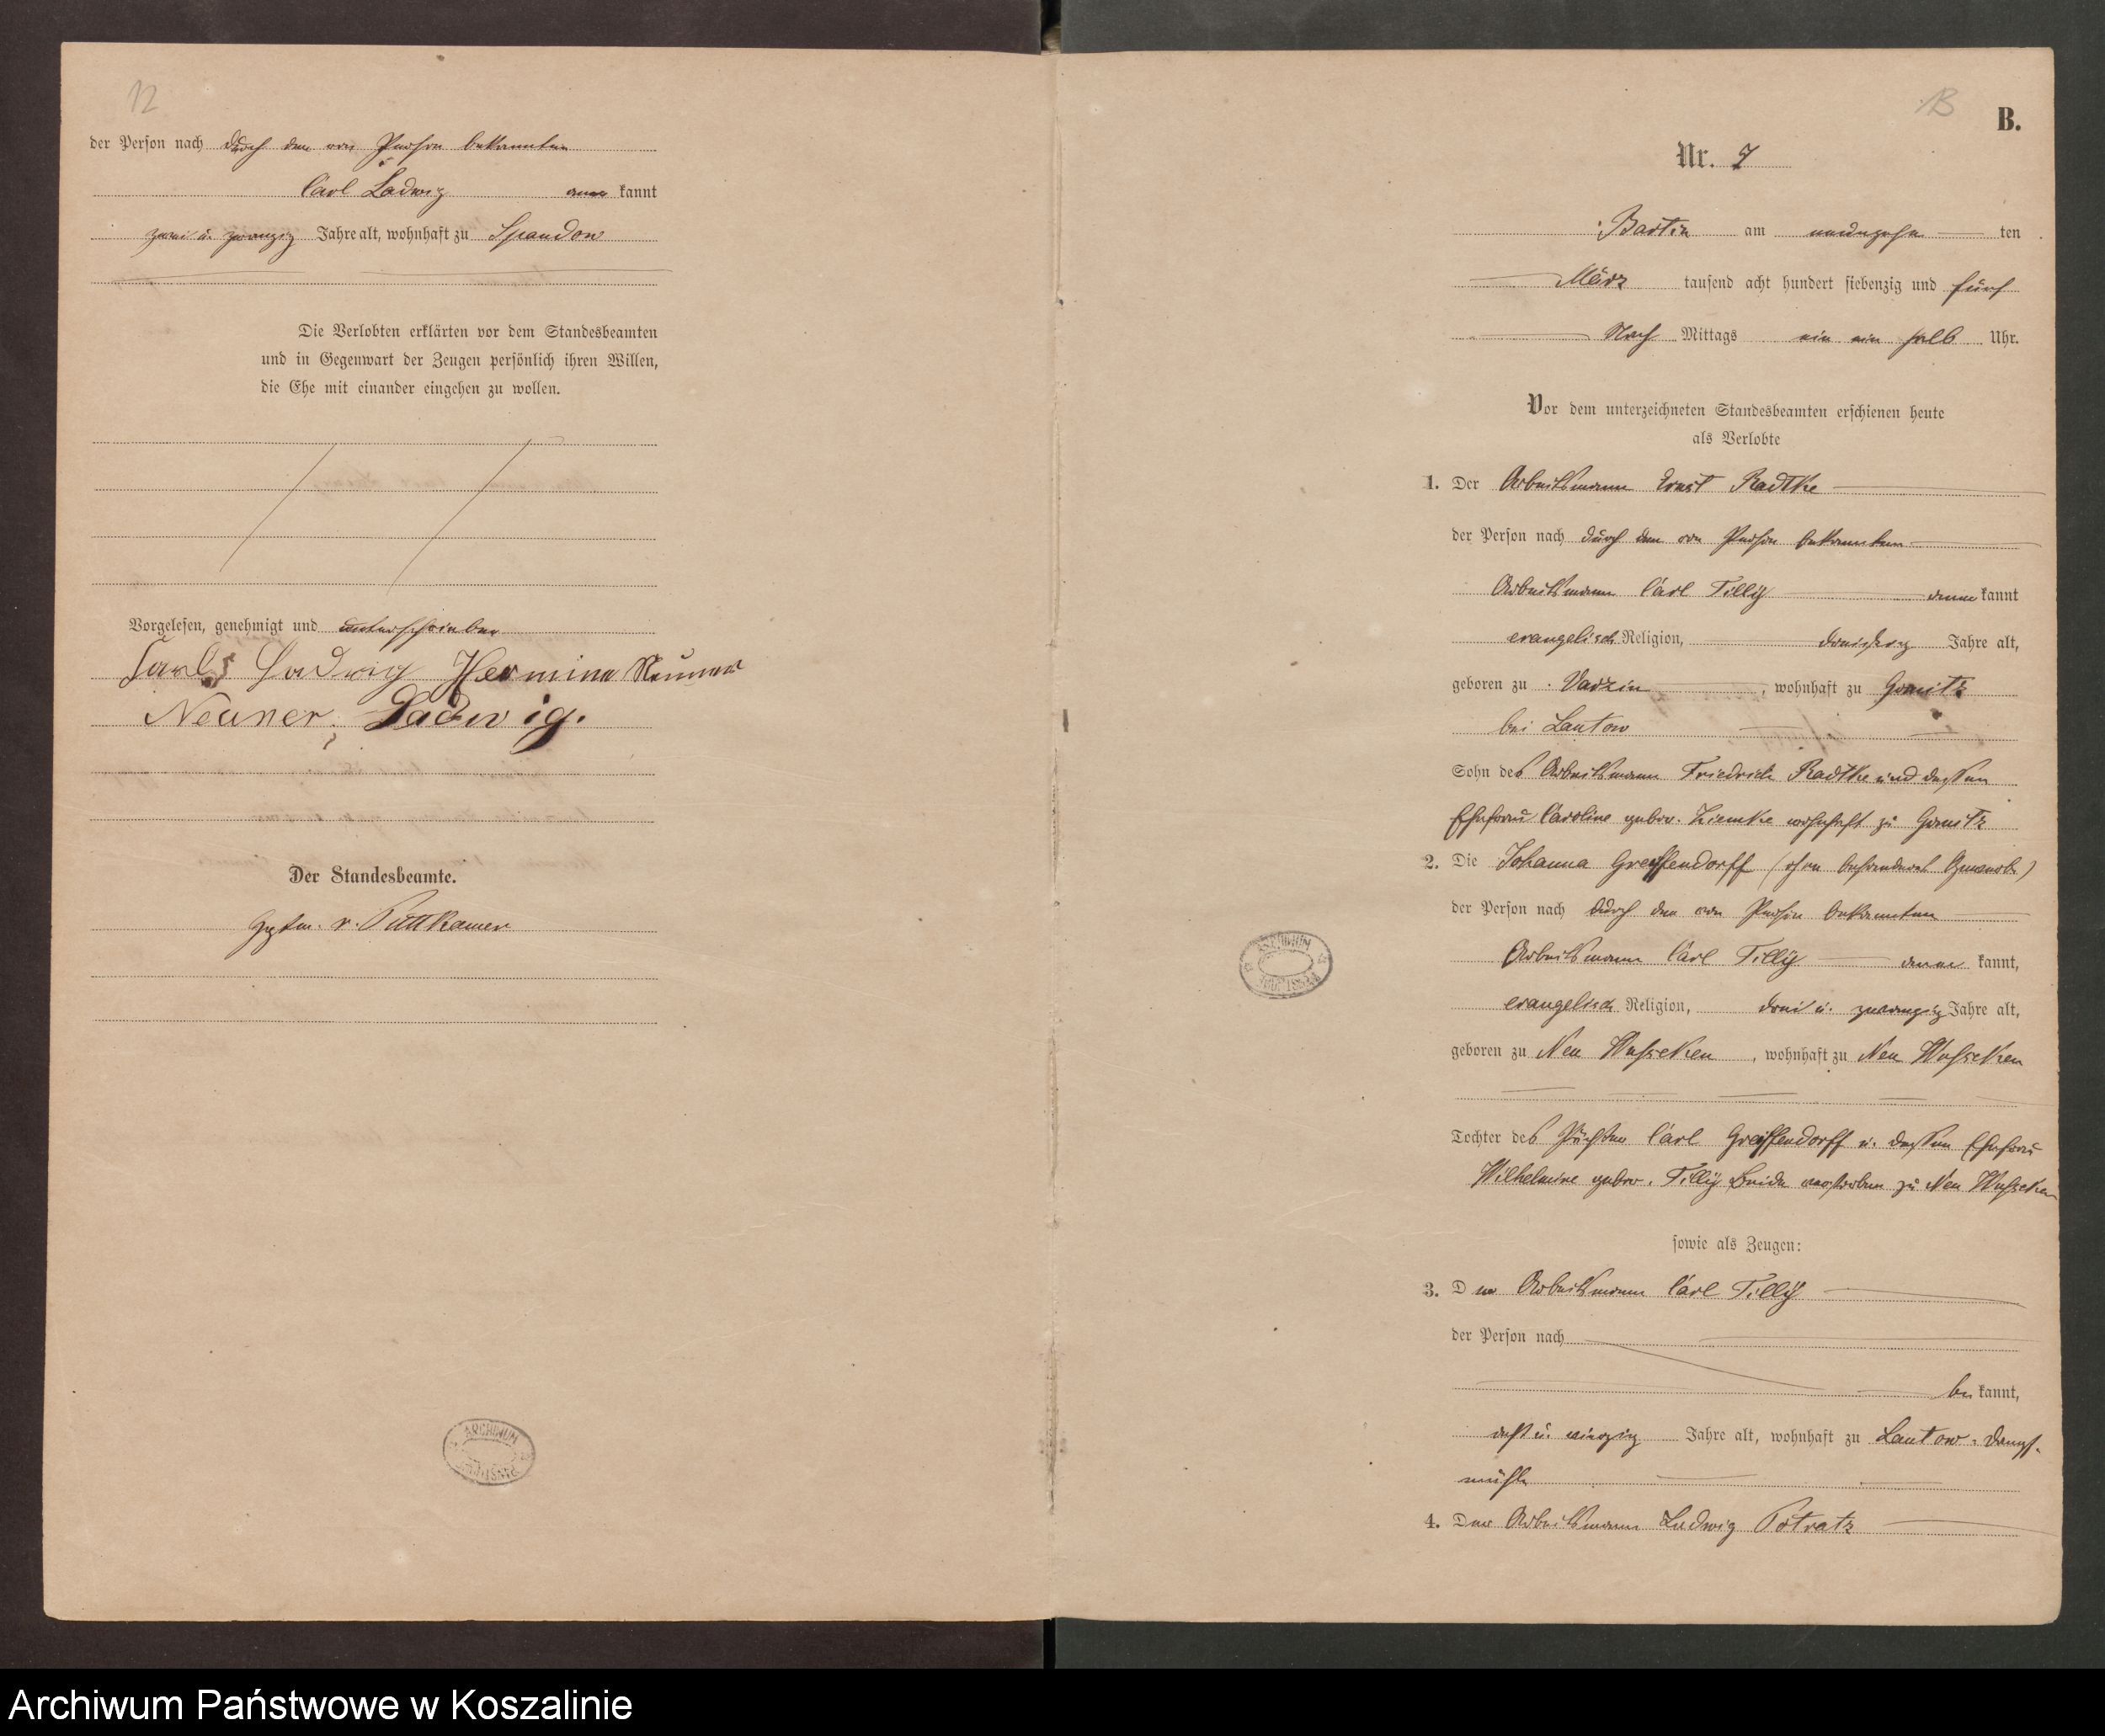 12
der Person nach durch den von Person bekannten
Carl Ladwig aner kannt
zwei u. zwanzig Jahre alt, wohnhaft zu Spandow
Die Verlobten erklärten vor dem Standesbeamten
und in Gegenwart der Zeugen persönlich ihren Willen,
die Ehe mit einander eingehen zu wollen.
Vorgelesen, genehmigt und unterschrieben
Carl Ladwig Hermine Neuner
Neuner, Ladwig.
Der Standesbeamte.
v. Puttkamer
ARCHIWUM
13
B.
Nr. 7
Bartin am neunzehn ten
März tausend acht hundert siebenzig und fünf
Nach Mittags ein ein halb Uhr.
Vor dem unterzeichneten Standesbeamten erschienen heute
als Verlobte
1. Der Arbeitsmann Ernst Radtke
der Person nach durch den von Person bekannten
Arbeitsmann Carl Tilly aner kannt
evangelisch Religion, dreißig Jahre alt,
geboren zu Varzin, wohnhaft zu
bei Lantow
Sohn des Arbeitsmann Friedrich Radtke und dessen
Ehefrau Caroline gebor. Ziemke wohnhaft zu
2. Die Johanna Greiffendorff (ohne besonderes Gewerbe)
der Person nach durch den von Person bekannten
Arbeitsmann Carl Tilly aner kannt,
evangelisch Religion, drei u. zwanzig Jahre alt,
geboren zu Neu Wusseken, wohnhaft zu Neu Wusseken
Tochter des Carl Greiffendorff u. dessen Ehefrau
Wilhelmine gebor. Tilly beide verstorben zu Neu Wusseken
sowie als Zeugen:
3. Der Arbeitsmann Carl Tilly
der Person nach
be kannt,
acht u. vierzig Jahre alt, wohnhaft zu Lantow-Dampf-
mühle
4. Der Arbeitsmann Ludwig Potratz
ARCHIWUM
Archiwum Państwowe w Koszalinie